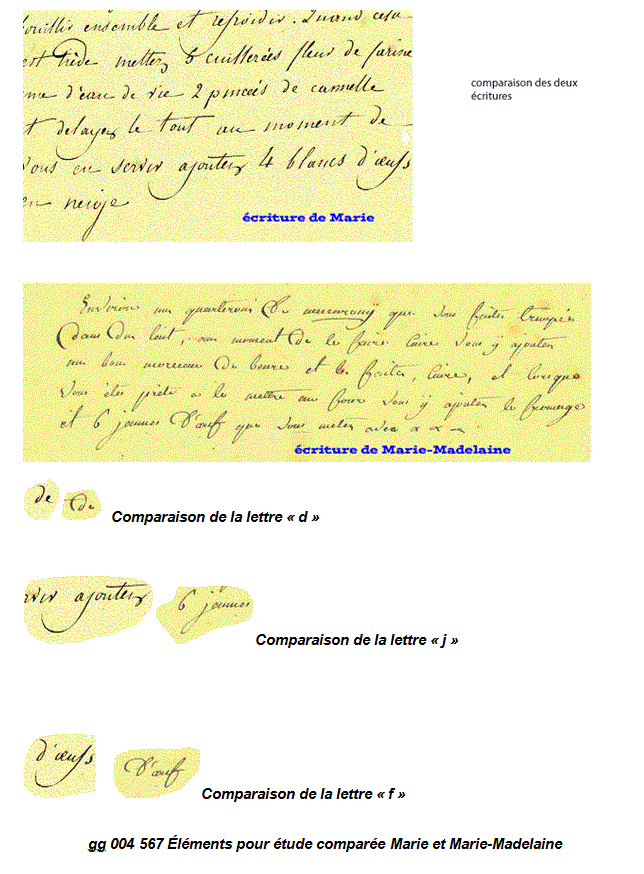 bouillir ensemble et refroidir. Quand cela
est tiède mettez 6 cuillerées fleur de farine
me d'eau de vie 2 pincées de cannelle
t delayez le tout au moment de
vous en servir ajoutez 4 blancs d'œufs
en neige
écriture de Marie
comparaison des deux
écritures
Environ un quarteroni de maccarony que vous faites trempée
dans du lait, au moment de le faire cuire vous y ajouten
un bon morceau de beure et le faites, cuire, et lorsque
vous êtes prete a le mettre au four vous y ajouten le fromage
et 6 jaunes d'œuf que vous metes avec
écriture de Marie-Madelaine
de de Comparaison de la lettre « d »
rvir ajoutez 6 jaunes Comparaison de la lettre « j »
d'œufs D'œuf Comparaison de la lettre « f »
gg 004 567 Éléments pour étude comparée Marie et Marie-Madelaine